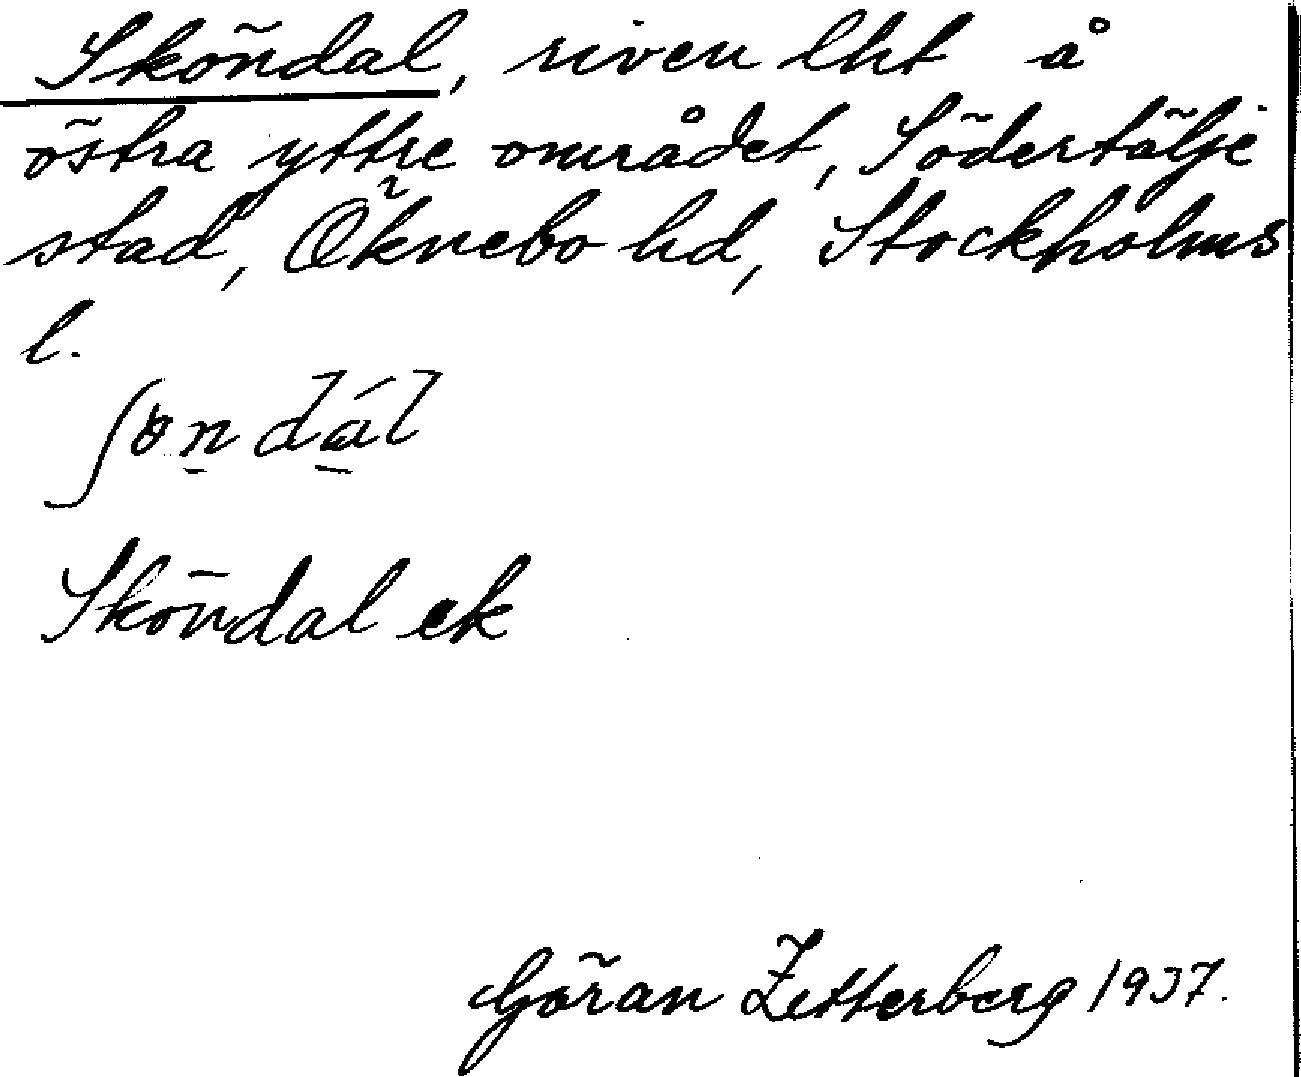 Sköndal, riven lht å
östra yttre området, Södertälje
stad, Öknebo hd, Stockholms
l.
Sköndal ek
Göran Zetterberg 1937.